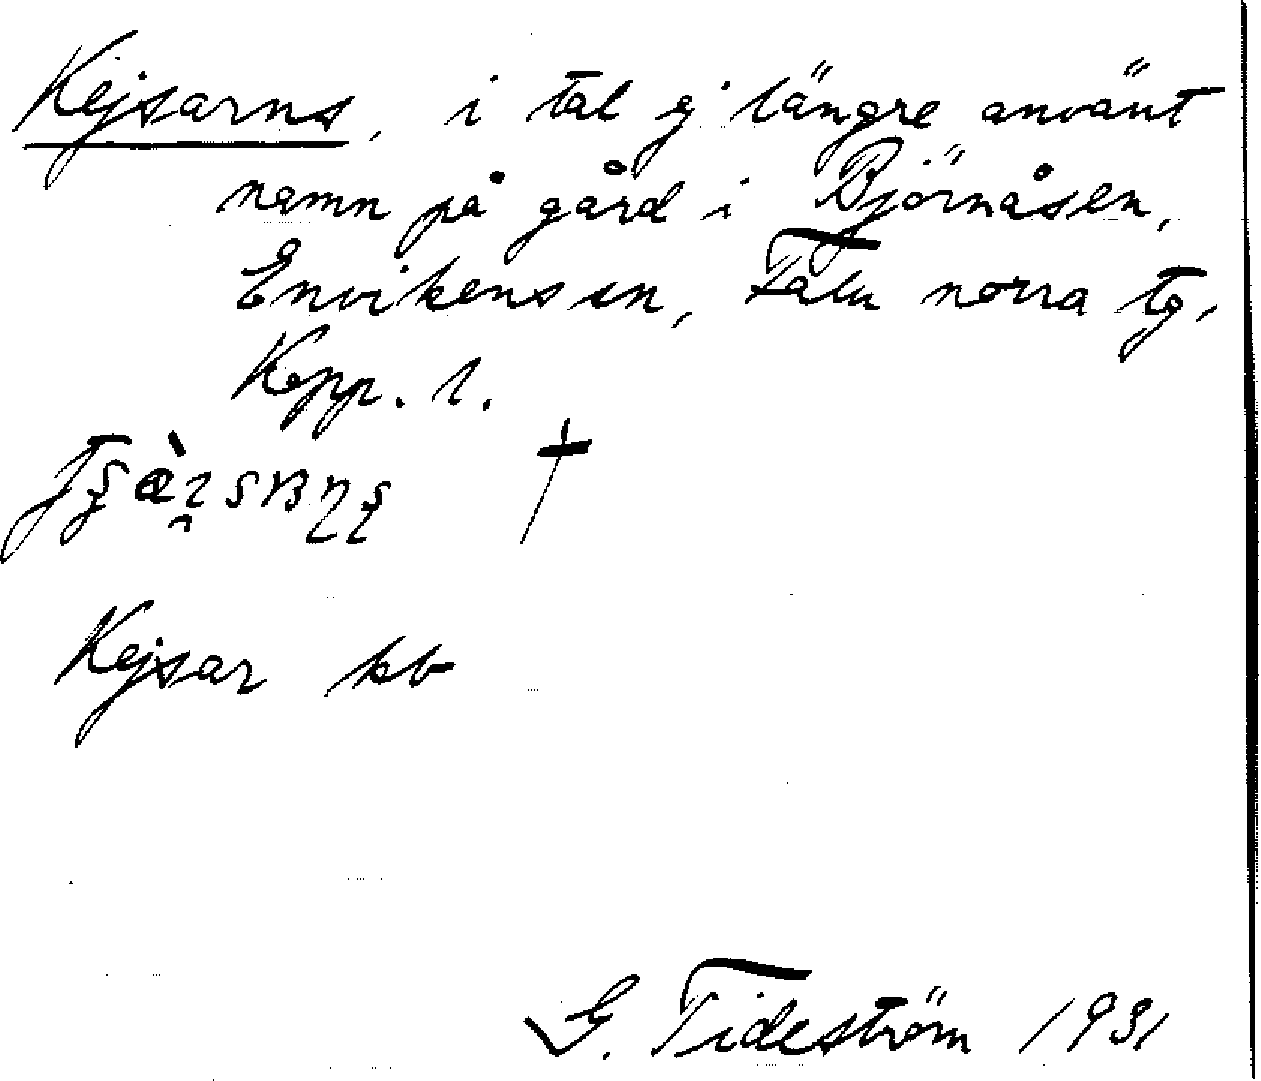 Kejsarns, i tal ej längre använt
namn på gård i Björnåsen,
Envikens sn, Falu norra tg,
Kopp. l.
†
Kejsar kb
G. Tideström 1931